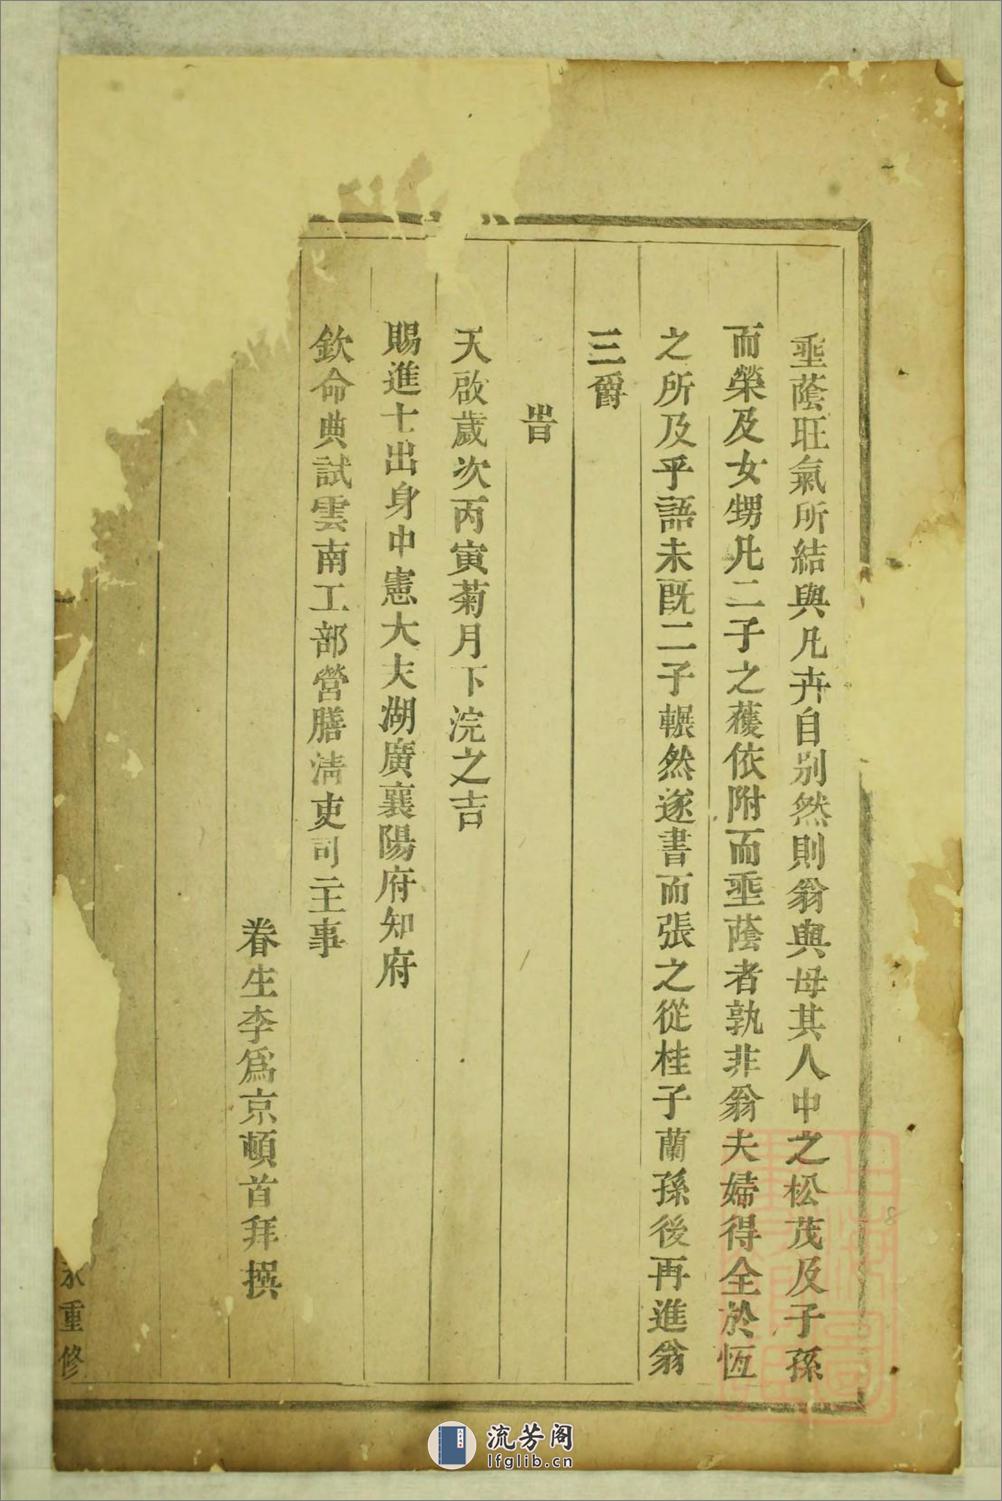 埀蔭旺氣所結與凡卉自别然則翁與母其人中之松茂及子孫
而榮及女甥凡二子之蔭依附而埀蔭者孰非翁夫婦得全於恆
之所及乎語未既二子輾然遂書而張之從桂子蘭孫後再進翁
三爵
旹
天啟歲次丙寅菊月下浣之吉
賜進士出身中憲大夫湖廣襄陽府知府
欽命典試雲南工部營膳清吏司主事
眷生李爲京頓首拜撰
永重修
流芳阁
lfglib.cn